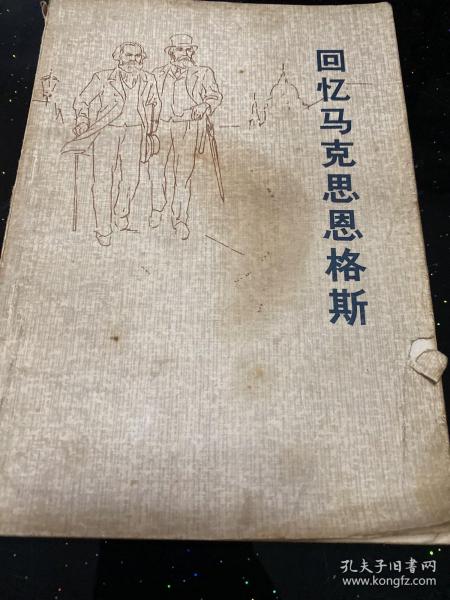 回忆马克思恩格斯
孔夫子旧书网
www.kongfz.com